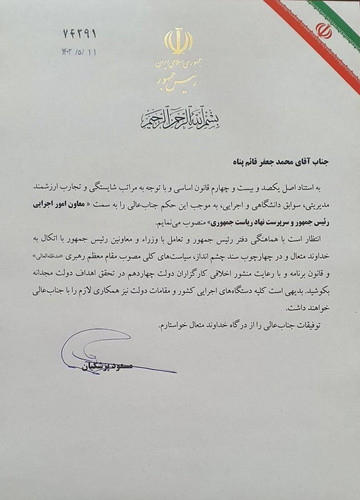 ۷۴۳۹۱
۱۴۰۳/۵/۱۱
جمهوری اسلامی ایران
رئیس جمهور
بسم الله الرحمن الرحیم
جناب آقای محمد جعفر قائم پناه
به استناد اصل یکصد و بیست و چهارم قانون اساسی و با توجه به مراتب شایستگی و تجارب ارزشمند
مدیریتی، سوابق دانشگاهی و اجرایی، به موجب این حکم جناب‌عالی را به سمت « معاون امور اجرایی
رئیس جمهور و سرپرست نهاد ریاست جمهوری» منصوب می‌نمایم.
انتظار است با هماهنگی دفتر رئیس جمهور و تعامل با وزراء و معاونین رئیس جمهور با اتکال به
خداوند متعال و در چهارچوب سند چشم انداز، سیاست‌های کلی مصوب مقام معظم رهبری (مدظله‌العالی)
و قانون برنامه و با رعایت منشور اخلاقی کارگزاران دولت چهاردهم در تحقق اهداف دولت مجدانه
بکوشید. بدیهی است کلیه دستگاه‌های اجرایی کشور و مقامات دولت نیز همکاری لازم را با جناب‌عالی
خواهند داشت.
توفیقات جناب‌عالی را از درگاه خداوند متعال خواستارم.
مسعود پزشکیان